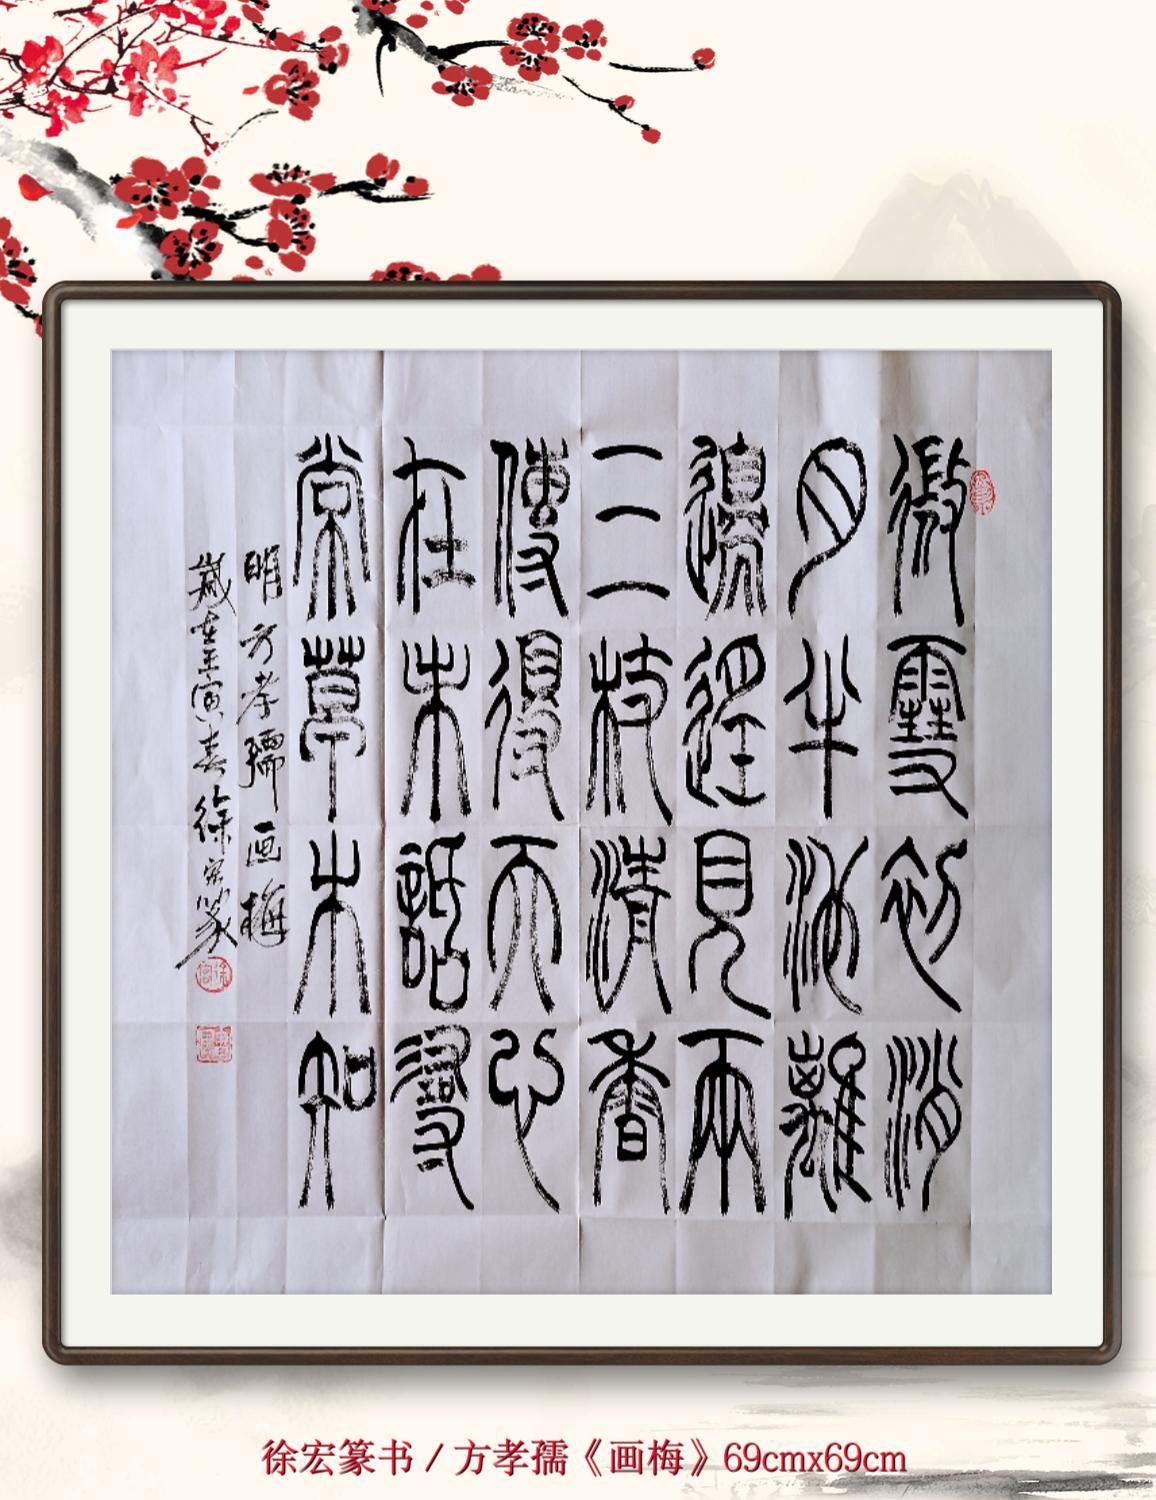 微雪初消
月半池籬
邊遥見兩
三枝清香
傳得天心
在未話尋
常草木知
明方孝孺画梅
歲在壬寅春徐宏篆
徐宏篆书 / 方孝孺《画梅》69cmx69cm